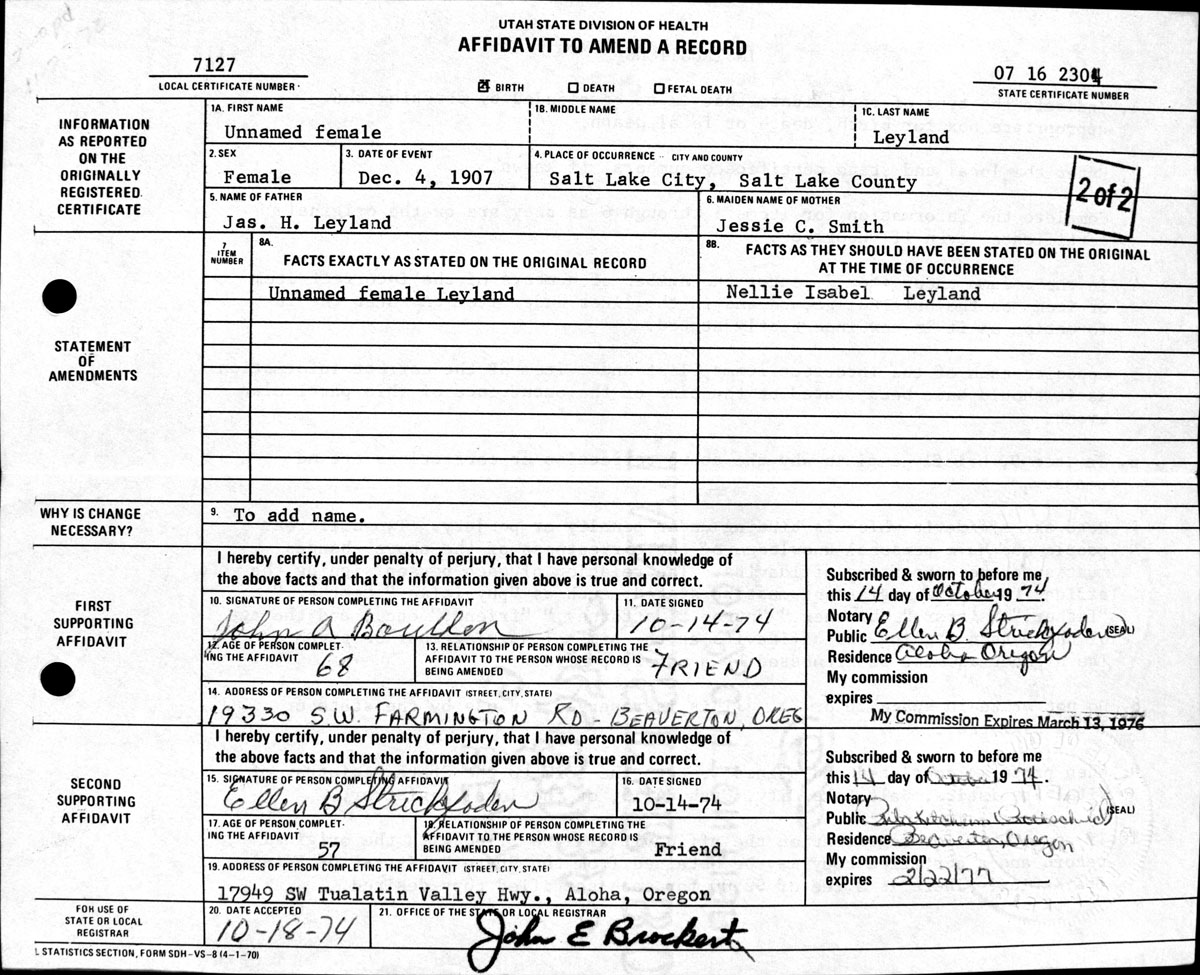 UTAH STATE DIVISION OF HEALTH
AFFIDAVIT TO AMEND A RECORD
7127
LOCAL CERTIFICATE NUMBER
BIRTH DEATH FETAL DEATH
07 16 2304
STATE CERTIFICATE NUMBER
INFORMATION
AS REPORTED
ON THE
ORIGINALLY
REGISTERED
CERTIFICATE
1A. FIRST NAME
Unnamed female
1B. MIDDLE NAME
1C. LAST NAME
Leyland
2. SEX
Female
3. DATE OF EVENT
Dec. 4, 1907
4. PLACE OF OCCURRENCE -- CITY AND COUNTY
Salt Lake City, Salt Lake County
2 of 2
5. NAME OF FATHER
Jas. H. Leyland
6. MAIDEN NAME OF MOTHER
Jessie C. Smith
STATEMENT
OF
AMENDMENTS
7
ITEM
NUMBER
8A.
FACTS EXACTLY AS STATED ON THE ORIGINAL RECORD
8B. FACTS AS THEY SHOULD HAVE BEEN STATED ON THE ORIGINAL
AT THE TIME OF OCCURRENCE
Unnamed female Leyland
Nellie Isabel Leyland
WHY IS CHANGE
NECESSARY?
9. To add name.
FIRST
SUPPORTING
AFFIDAVIT
I hereby certify, under penalty of perjury, that I have personal knowledge of
the above facts and that the information given above is true and correct.
10. SIGNATURE OF PERSON COMPLETING THE AFFIDAVIT
John A Boulden
11. DATE SIGNED
10-14-74
12. AGE OF PERSON COMPLET-
ING THE AFFIDAVIT 68
13. RELATIONSHIP OF PERSON COMPLETING THE
AFFIDAVIT TO THE PERSON WHOSE RECORD IS
BEING AMENDED
FRIEND
14. ADDRESS OF PERSON COMPLETING THE AFFIDAVIT (STREET, CITY, STATE)
19330 S.W. FARMINGTON RD - BEAVERTON, OREG
Subscribed & sworn to before me
this 14 day of October 1974
Notary
Public Ellen B. Strickfaden (SEAL)
Residence Aloha, Oregon
My commission
expires
My Commission Expires March 13, 1976
SECOND
SUPPORTING
AFFIDAVIT
I hereby certify, under penalty of perjury, that I have personal knowledge of
the above facts and that the information given above is true and correct.
15. SIGNATURE OF PERSON COMPLETING AFFIDAVIT
Ellen B Strickfaden
16. DATE SIGNED
10-14-74
17. AGE OF PERSON COMPLET-
ING THE AFFIDAVIT 57
18. RELATIONSHIP OF PERSON COMPLETING THE
AFFIDAVIT TO THE PERSON WHOSE RECORD IS
BEING AMENDED
Friend
19. ADDRESS OF PERSON COMPLETING THE AFFIDAVIT (STREET, CITY, STATE)
17949 SW Tualatin Valley Hwy., Aloha, Oregon
Subscribed & sworn to before me
this 14 day of October 1974.
Notary
Public (SEAL)
Residence Beaverton, Oregon
My commission
expires 2/22/77
FOR USE OF
STATE OR LOCAL
REGISTRAR
20. DATE ACCEPTED
10-18-74
21. OFFICE OF THE STATE OR LOCAL REGISTRAR
John E Brockert
L STATISTICS SECTION, FORM SDH-VS-8 (4-1-70)